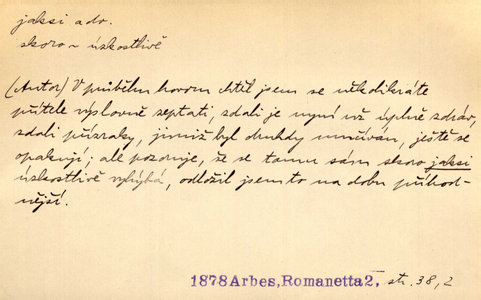 jaksi adv.
skoro ~ úzkostlivě
(Autor) V průběhu hovoru chtěl jsem se několikráte
přítele výslovně zeptati, zdali je nyní už úplně zdráv,
zdali přízraky, jimiž byl druhdy mučíván, ještě se
opakují; ale pozoruje, že se tomu sám skoro jaksi
úzkostlivě vyhýbá, odložil jsem to na dobu příhod-
nější.
1878 Arbes, Romanetta 2, str. 38,2